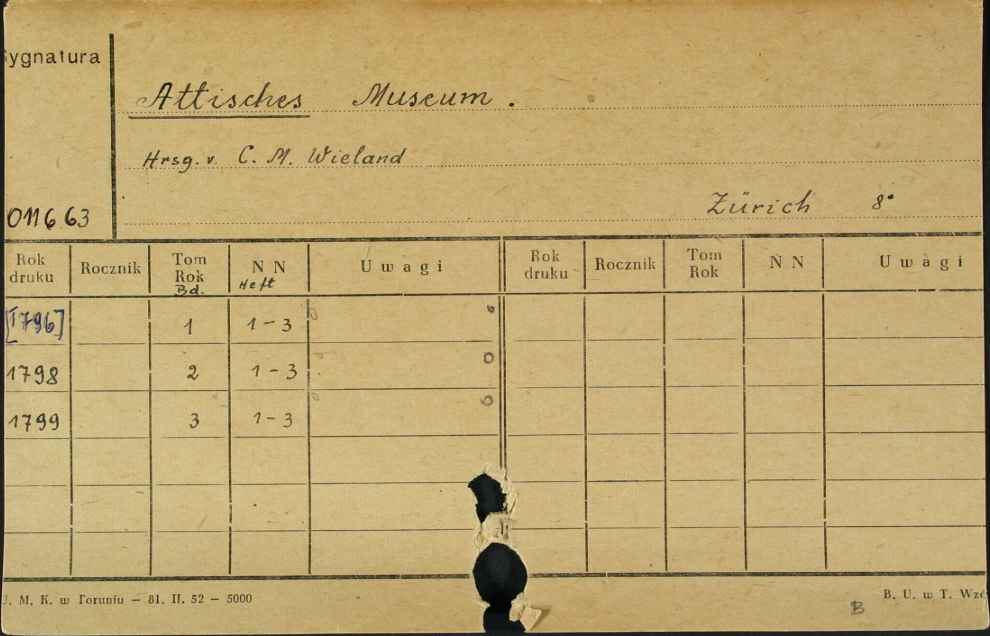 ygnatura
Attisches Museum.
Hrsg. v. C. M. Wieland
Zürich 8°
011663
Rok druku Rocznik Tom Rok Bd. N N Heft Uwagi Rok druku Rocznik Tom Rok N N Uwagi
[1796] 1 1-3
1798 2 1-3
1799 3 1-3
U. M. K. w Toruniu — 81. II. 52 — 5000
B. U. w T. Wzó
B